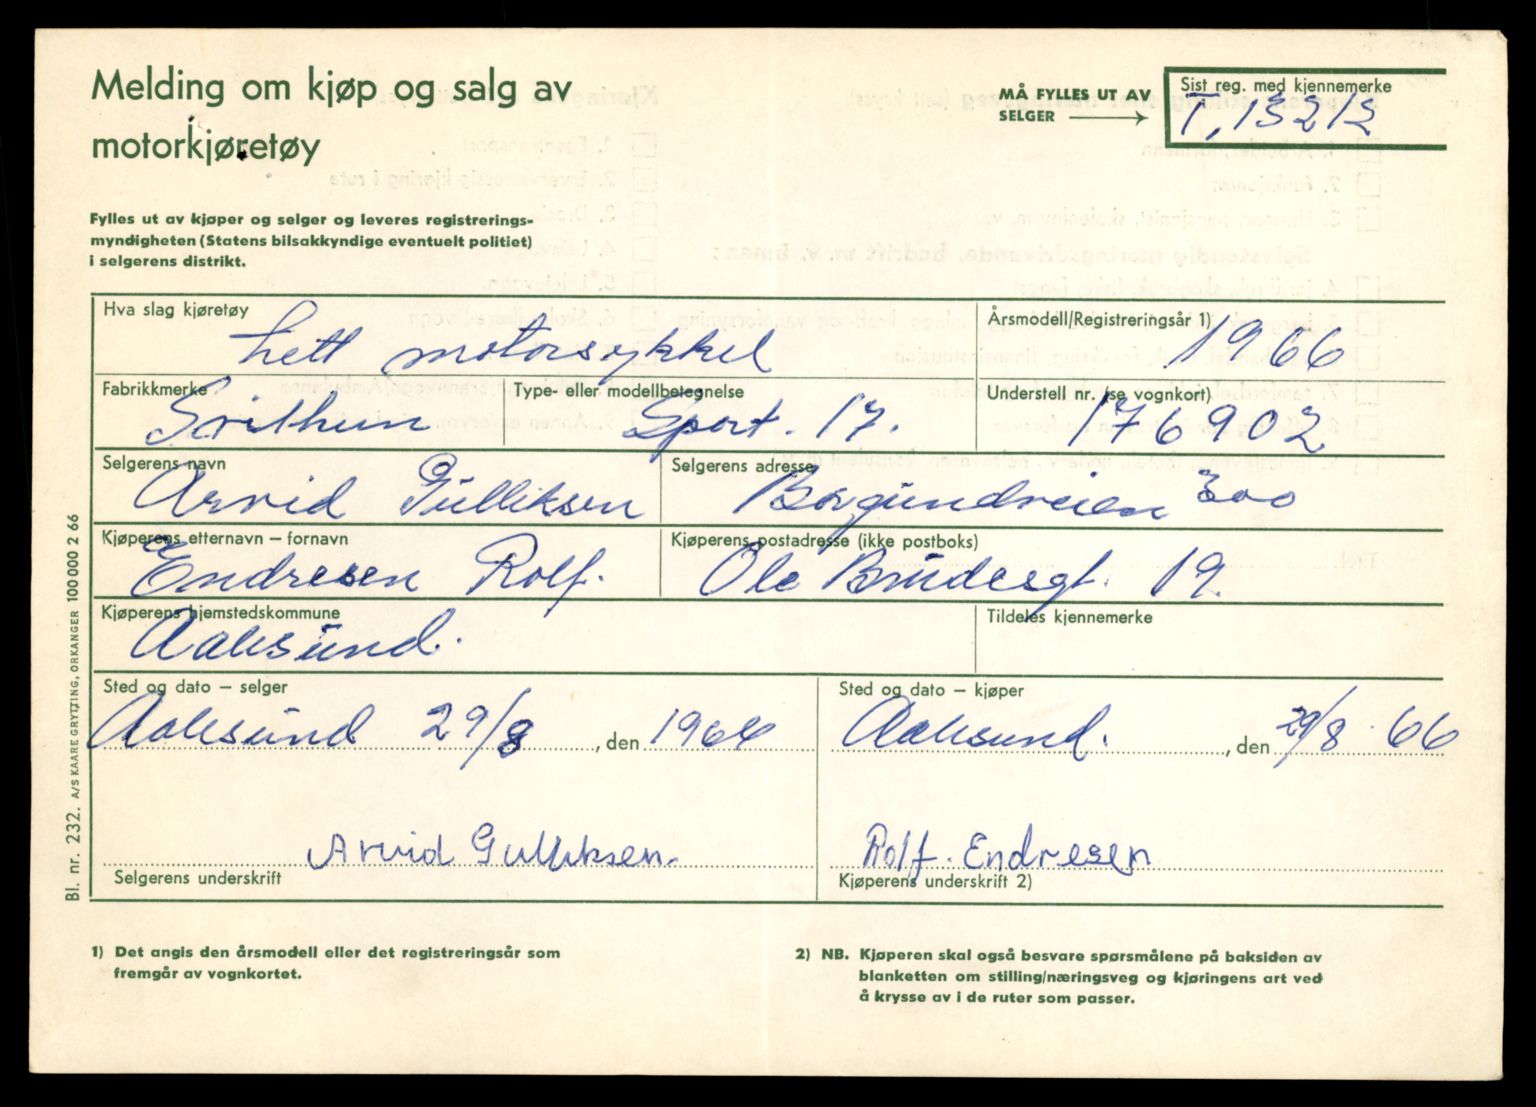 Melding om kjøp og salg av
motorkjøretøy
MÅ FYLLES UT AV
SELGER
Sist reg. med kjennemerke
T. 13212
Fylles ut av kjøper og selger og leveres registrerings-
myndigheten (Statens bilsakkyndige eventuelt politiet)
i selgerens distrikt.
Hva slag kjøretøy
Lett motorsykkel
Årsmodell/Registreringsår 1)
1966
Fabrikkmerke
Svithun
Type- eller modellbetegnelse
Sport. 17.
Understell nr. (se vognkort)
176902
Selgerens navn
Arvid Gulliksen
Selgerens adresse
Borgundveien 300
Kjøperens etternavn – fornavn
Endresen Rolf.
Kjøperens postadresse (ikke postboks)
Ole Brudesgt. 19.
Kjøperens hjemstedskommune
Aalesund.
Tildeles kjennemerke
Sted og dato – selger
Aalesund 29/8, den 1966
Sted og dato – kjøper
Aalesund., den 29/8 · 66
Arvid Gulliksen.
Selgerens underskrift
Rolf. Endresen
Kjøperens underskrift 2)
1) Det angis den årsmodell eller det registreringsår som
fremgår av vognkortet.
2) NB. Kjøperen skal også besvare spørsmålene på baksiden av
blanketten om stilling/næringsveg og kjøringens art ved
å krysse av i de ruter som passer.
Bl. nr. 232. A/S KAARE GRYTTING, ORKANGER 100 000 2 66